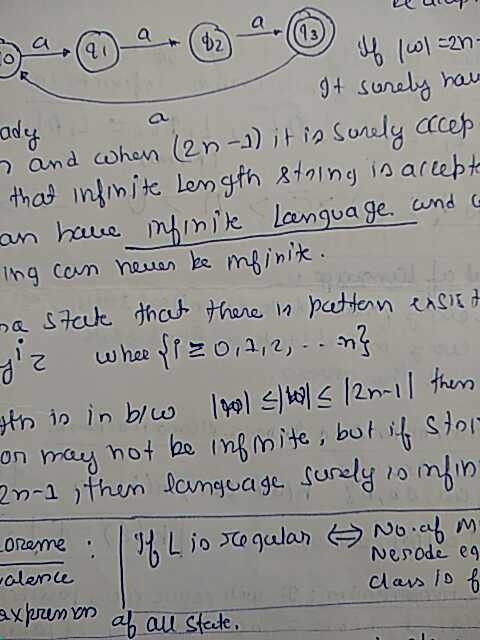 a a a
q1 q2 q3
If |w| = 2n-
a
It surely hav
ady
n and when (2n-1) it is surely accep
that infinite length string is accepte
an have infinite Language and
ing can never be infinite.
a state that there is pattern exsist
y^i z whee {i ≥ 0,1,2, -- n}
gth is in b/w ≤ |w| ≤ |2n-1| then
or may not be infinite, but if stri
2n-1, then language surely is infin
oreme : If L is regular ⇔ No. of M
valence Nerode eq
class is f
expression of all state.